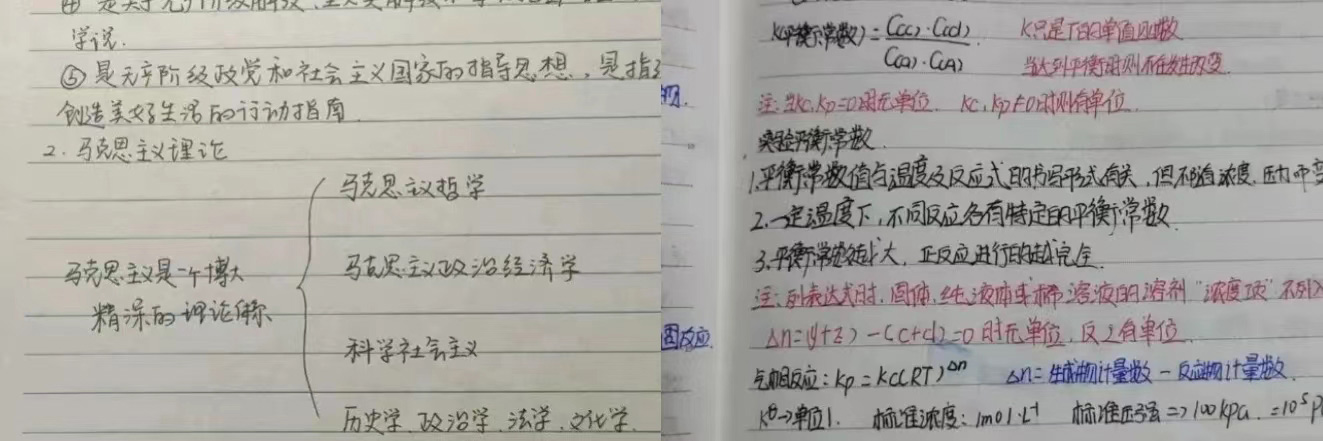 学说.
⑤ 是无产阶级政党和社会主义国家的指导思想,是指
创造美好生活的行动指南
2. 马克思主义理论
马克思主义哲学
马克思主义是一个博大
精深的理论体系
马克思主义政治经济学
科学社会主义
历史学、政治学、法学、文化学.
K(平衡常数)=
K只是T的单值函数
当达到平衡时则不在发生改变.
注:当Kc,Kp=0时无单位. Kc,Kp≠0时则有单位.
实验平衡常数.
1.平衡常数值与温度及反应式的书写形式有关,但不随浓度,压力而变
2.一定温度下,不同反应各有特定的平衡常数
3.平衡常数越大,正反应进行的越完全.
注:列表达式时,固体,纯液体或稀溶液的溶剂"浓度项"不列入
Δn=(y+z)-(c+d)=0时无单位,反之有单位.
气相反应:Kp=Kc(RT)^Δn Δn=生成物计量数-反应物计量数.
K^θ→单位1. 标准浓度:1mol·L⁻¹ 标准压强=>100kpa.=10⁵P
固反应.